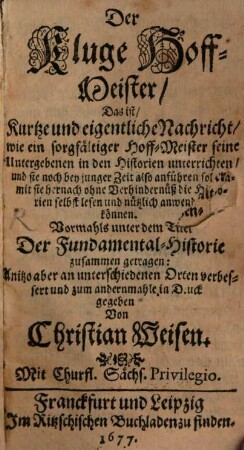 Der
Kluge Hoff-
Meister/
Das ist/
Kurtze und eigentliche Nachricht/
wie ein sorgfältiger Hoff-Meister seine
Untergebenen in den Historien unterrichten/
und sie noch bey junger Zeit also anführen sol
mit sie hernach ohne Verhindernüß die
rien selbst lesen und nützlich
können.
Vormahls unter dem Titel
Der Fundamental-Historie
zusammen getragen:
Anitzo aber an unterschiedenen Orten verbes-
sert und zum andernmahle in Druck
gegeben
Von
Christian Weisen.
Mit Churfl. Sächs. Privilegio.
Franckfurt und Leipzig
Im Ritzschischen Buchladen zu finden.
1677.